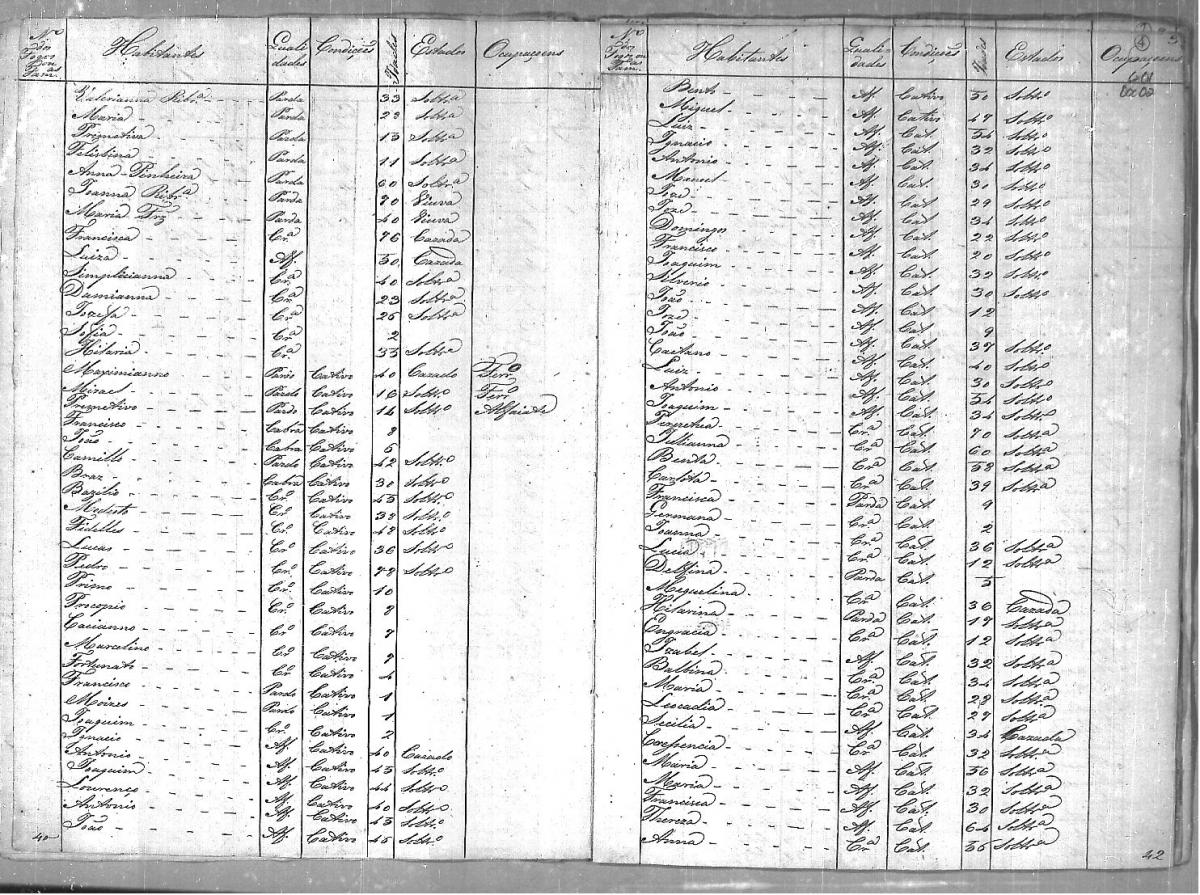 Nº dos Fogos Habitantes Qualidades Condições Idades Estados Ocupaçoens
Valerianna Ribrª Parda 33 Soltrª
Maria Parda 28 Soltª
Primetiva Parda 13 Soltª
Felisbina Parda 11 Soltrª
Anna Pinheira Parda 60 Soltrª
Joanna Ribrª Parda 70 Viuva
Maria Frz Parda 40 Viuva
Francisca Crª 76 Cazada
Luiza Af. 50 Cazada
Simplicianna Crª 40 Soltrª
Damianna Crª 23 Soltrª
Jozefa Crª 25 Soltrª
Sofia Crª 2
Hilaria Crª 33 Soltrª
Maximianno Pardo Cativo 40 Cazado Ferrº
Mizael Pardo Cativo 16 Soltrº Ferrº
Primetivo Pardo Cativo 14 Soltrº Alfaiate
Francisco Cabra Cativo 8
João Cabra Cativo 5
Camillo Pardo Cativo 42 Soltrº
Braz Cabra Cativo 30 Soltrº
Bazilio Crº Cativo 45 Soltrº
Modesto Crº Cativo 38 Soltrº
Fidelles Crº Cativo 48 Soltrº
Lucas Crº Cativo 36 Soltrº
Pedro Crº Cativo 78 Soltrº
Primo Crº Cativo 10
Procopio Crº Cativo 8
Cacianno Crº Cativo 7
Marcelino Crº Cativo 7
Fortunato Crº Cativo 4
Francisco Pardo Cativo 1
Moizes Pardo Cativo 1
Joaquim Crº Cativo 2
Ignacio Af. Cativo 40 Cazado
Antonio Af. Cativo 45 Soltrº
Joaquim Af. Cativo 44 Soltrº
Lourenço Af. Cativo 40 Soltrº
Antonio Af. Cativo 43 Soltrº
João Af. Cativo 45 Soltrº
40
Nº dos Fogos Habitantes Qualidades Condições Idades Estados Ocupaçoens
4
Bento Af. Cativo 50 Soltrº
Miguel Af. Cativo 47 Soltrº
Luiz Af. Cat. 54 Soltrº
Ignacio Af. Cat. 32 Soltrº
Antonio Af. Cat. 34 Soltrº
Manoel Af. Cat. 30 Soltrº
Jozé Af. Cat. 29 Soltrº
Jozé Af. Cat. 34 Soltrº
Domingos Af. Cat. 22 Soltrº
Francisco Af. Cat. 20 Soltrº
Joaquim Af. Cat. 32 Soltrº
Silverio Af. Cat. 30 Soltrº
João Af. Cat. 12
Jozé Af. Cat. 9
João Af. Cat. 37 Soltrº
Caetano Af. Cat. 40 Soltrº
Luiz Af. Cat. 30 Soltrº
Antonio Af. Cat. 54 Soltrº
Joaquim Af. Cat. 34 Soltrº
Crª Cat. 70 Soltrª
Jullianna Crª Cat. 60 Soltrª
Benta Crª Cat. 58 Soltrª
Carlota Crª Cat. 39 Soltrª
Francisca Parda Cat. 9
Germana Crª Cat. 2
Joanna Crª Cat. 36 Soltrª
Lucia Crª Cat. 12 Soltrª
Delfina Parda Cat. 5
Miquelina Crª Cat. 36 Cazada
Hilarina Parda Cat. 17 Soltrª
Engracia Crª Cat. 12 Soltrª
Izabel Af. Cat. 32 Soltrª
Balbina Crª Cat. 34 Soltrª
Maria Crª Cat. 28 Soltrª
Leocadia Crª Cat. 27 Soltrª
Secilia Af. Cat. 34 Cazada
Crª Cat. 32 Soltrª
Maria Af. Cat. 56 Soltrª
Maria Af. Cat. 32 Soltrª
Francisca Af. Cat. 30 Soltrª
Thereza Af. Cat. 64 Soltrª
Anna Crª Cat. 35 Soltrª
42